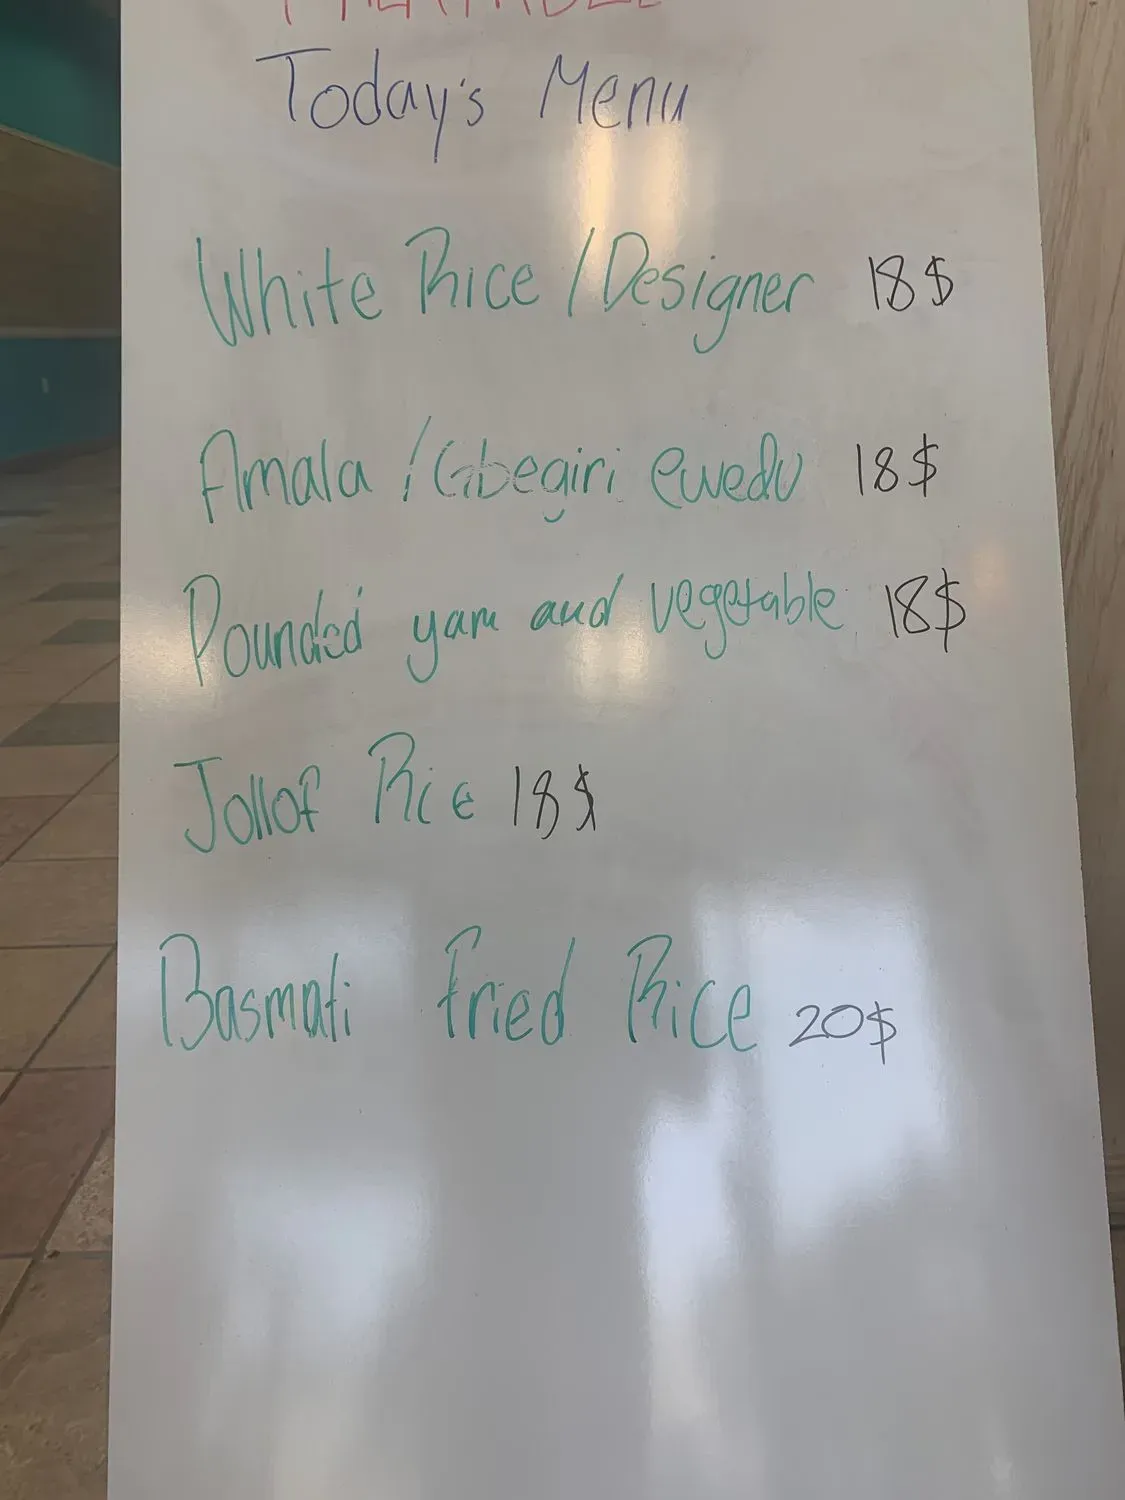 Today's Menu
White Rice / Designer 18$
Amala / Gbegiri ewedu 18$
Pounded yam and vegetable 18$
Jollof Rice 18$
Basmati Fried Rice 20$